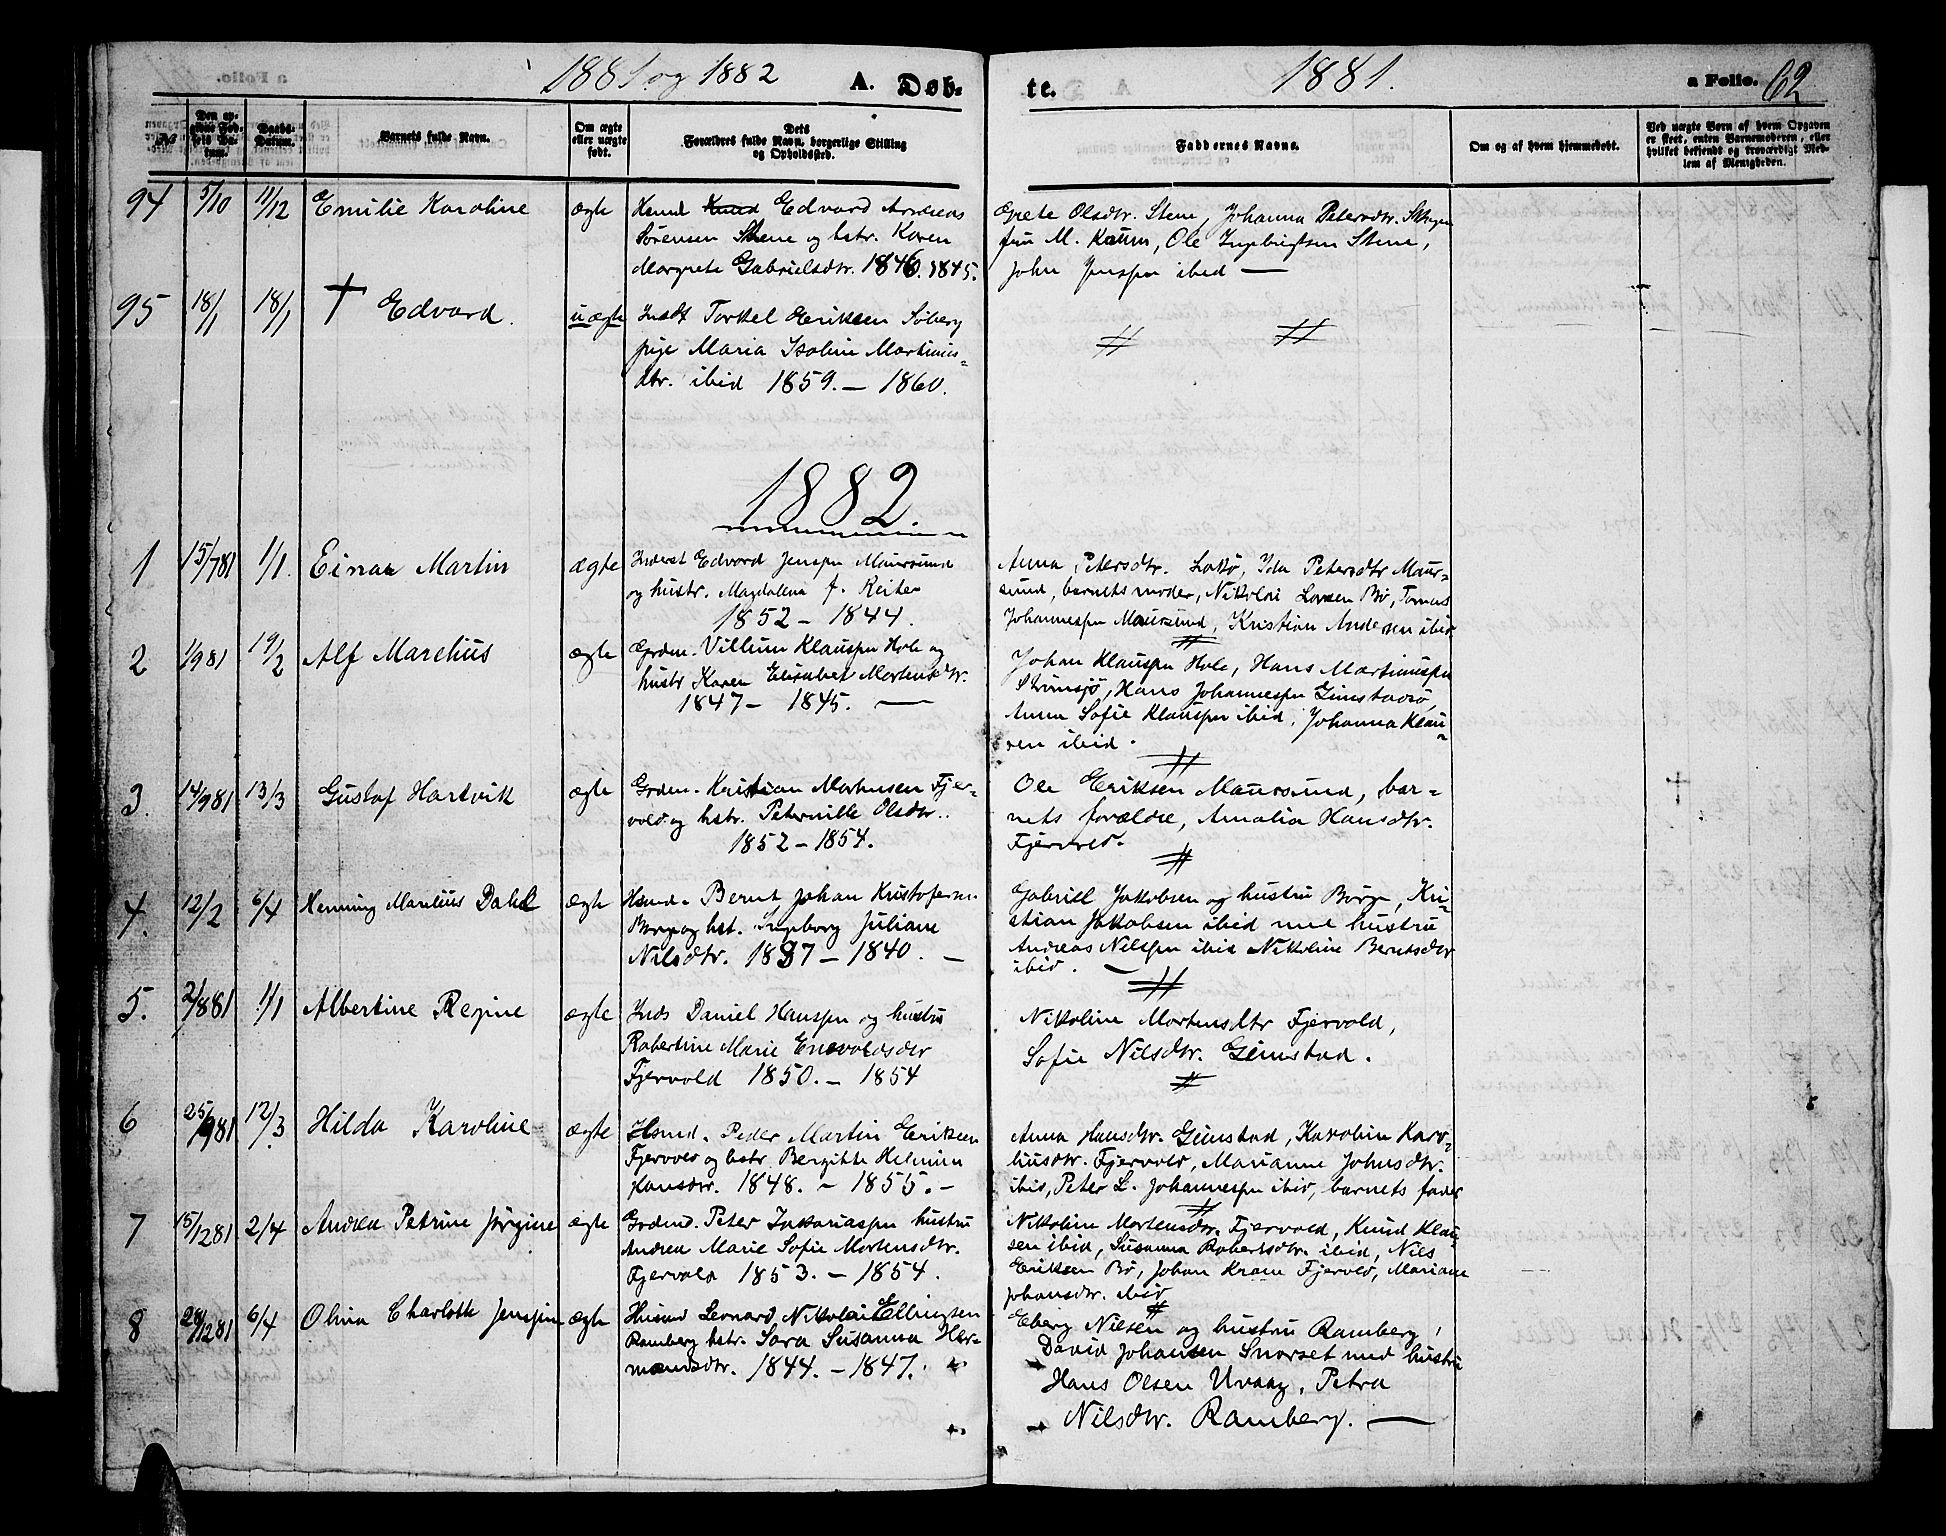 1881 og 1882 A. Døb-
te. 1881. a Folio. 62
No.
Den op-
givne Fød-
sels Da-
tum.
Daabs-
Datum.
Barnets fulde Navn.
Om ægte
eller uægte
født.
Dets
Forældres fulde Navn, borgerlige Stilling
og Opholdssted.
Faddernes Navne.
Om og af hvem hjemmedøbt.
Ved uægte Børn af hvem Opgaven
er skeet, enten Barnemoderen, eller
hvilket bekjendt og troværdigt Med-
lem af Menigheden.
94 5/10 11/12 Emilie Karoline ægte
Hsmd Knud Edvard Andreas
Sørensen Stene og hstr. Karen
Margrete Gabrielsdtr. 1846. 1845.
Grete Olsdtr. Stene, Johanna Petersdtr. Skagen
fru M. Kaum, Ole Ingebrigtsen Stene,
John Jenssen ibid —
95 18/1 18/1 † Edvard. uægte
Indst Torkel Eriksen Søberg
pige Maria Isoline Martinus-
dtr. ibid 1859. — 1860.
1882.
1 15/7 81 1/1. Einar Martin ægte
Inderst Edvard Jenssen Maursund
og hustr. Magdalena f. Reiten
1852 - 1844.
Anna Petersdtr. Loksø, Ida Petersdtr Maur-
sund, barnets moder, Nikolai Larsen Bø, Tomas
Johannessen Maursund, Kristian Andersen ibid
2 1/9 81 19/2 Alf Marelius ægte
Grdm. Villum Klaussen Hole og
hustr Karen Elisabet Mortensdtr.
1847 - 1845. —
Johan Klaussen Hole, Hans Martinussen
Strømsjø, Hans Johannessen Gimstadsø,
Anna Sofie Klaussen ibid, Johanna Klau-
sen ibid.
3. 14/9 81 13/3 Gustaf Hartvik ægte
Grdm. Kristian Mortensen Fjer-
vold og hstr. Peternille Olsdtr.
1852 - 1854.
Ole Eriksen Maursund, bar-
nets forældre, Amalia Hansdtr.
Fjervold.
†
4. 12/2 6/4 Henning Marelius Dahl ægte
Hsmd. Bernt Johan Kristofersen
Borge og hst. Ingeborg Juliane
Nilsdtr. 1837 - 1840. —
Gabriel Jakobsen og hustru Borge, Kri-
stian Jakobsen ibid med hustru
Andreas Nilssen ibid Nikoline Berntsdtr
ibid. —
5. 2/8 81 1/1 Albertine Regine ægte
Inds Daniel Hanssen og hustru
Robertine Marie Enevoldsdtr
Fjervold 1850. — 1854
Nikoline Mortensdtr Fjervold,
Sofie Nilsdtr. Gimstad.
6 25/9 81 12/3 Hilda Karoline ægte
Hsmd. Peder Martin Eriksen
Fjervold og hstr Bergitte Helmine
Hansdtr. 1848. - 1855. -
Anna Hansdtr. Gimstad, Karoline Karo-
liusdtr. Fjervold, Marianne Johnsdtr.
ibid, Peter L. Johannessen ibid, barnets fader
7 15/12 81 2/4 Andrea Petrine Jørgine ægte
Grdmd. Peter Sakariassen hustru
Andrea Marie Sofie Mortensdtr.
Fjervold 1853. - 1854.
Nikoline Mortensdtr. Fjervold, Knud Klau-
sen ibid, Susanna Robertsdtr. ibid, Nils
Eriksen Bø, Johan Krane Fjervold, Mariane
Johansdtr. ibid
8 28/12 81 6/4 Olina Charlotte Jenssine ægte
Husmd Leonard Nikolai Ellingsen
Ramberg hstr. Sara Susanna Her-
mandsdtr. 1844. - 1847.
Eberg Nilsen og hustru Ramberg,
David Johansen Snorset med hustru
Hans Olsen Uvaag, Petra
Nilsdtr. Ramberg. —